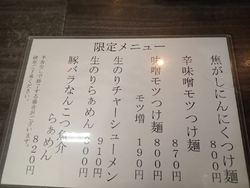 限定メニュー
焦がしにんにくつけ麺
800円
辛味噌モツつけ麺
870円
味噌モツつけ麺
800円
モツ増
190円
生のりチャーシューメン
910円
生のりらぁめん
豚バラなんこつ魚介
らぁめん
820円